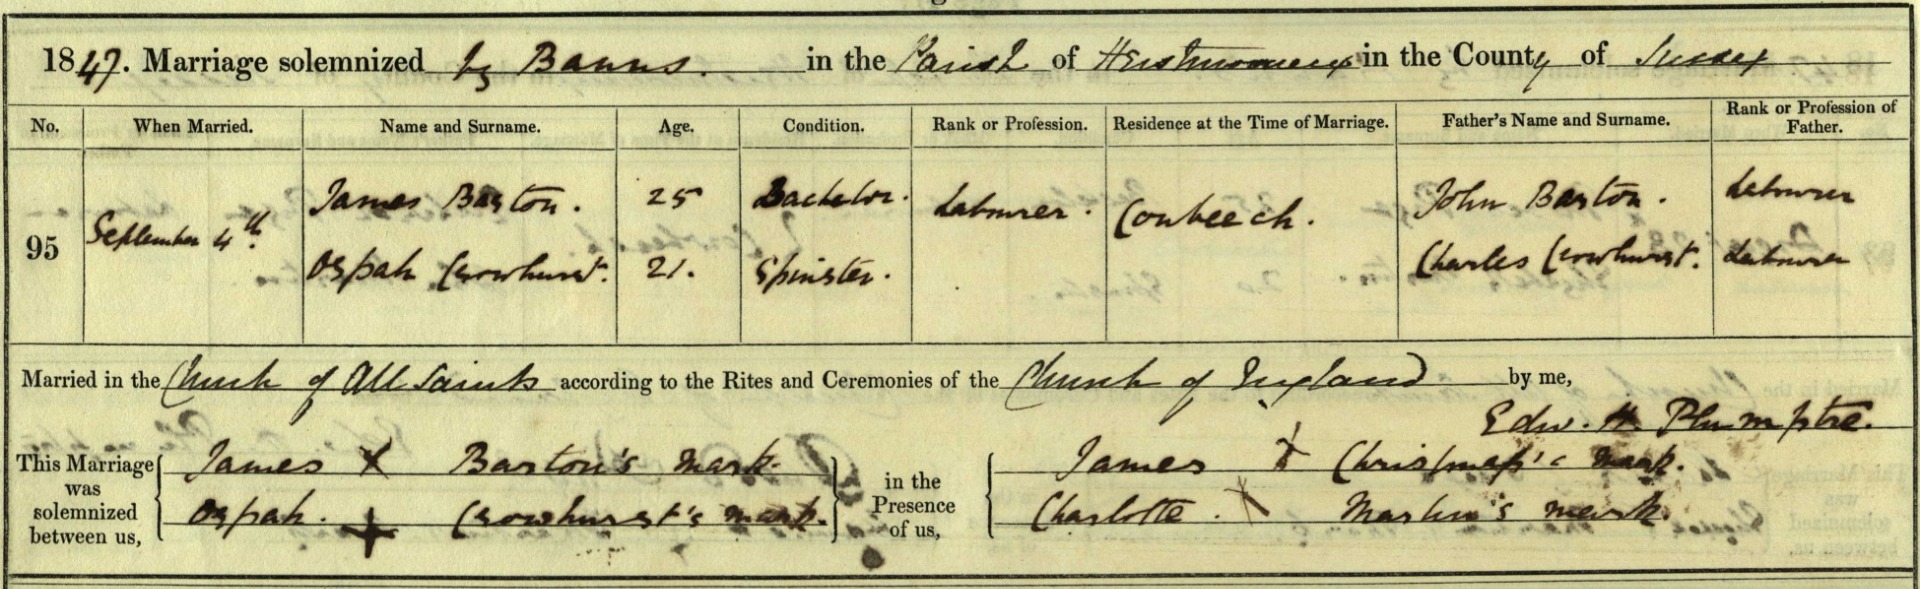 1847. Marriage solemnized by Banns. in the Parish of Herstmonceux in the County of Sussex
No. When Married. Name and Surname. Age. Condition. Rank or Profession. Residence at the Time of Marriage. Father's Name and Surname. Rank or Profession of Father.
95 September 4th. James Barton. 25 Bachelor. Labourer. Cowbeech. John Barton. Labourer
Orpah Crowhurst. 21. Spinster. Charles Crowhurst. Labourer
Married in the Church of All Saints according to the Rites and Ceremonies of the Church of England by me,
Edw. H. Plumptre.
This Marriage was solemnized between us, James X Barton's mark. in the Presence of us, James X Christmas's mark.
Orpah. X Crowhurst's mark. Charlotte. X Martin's mark.